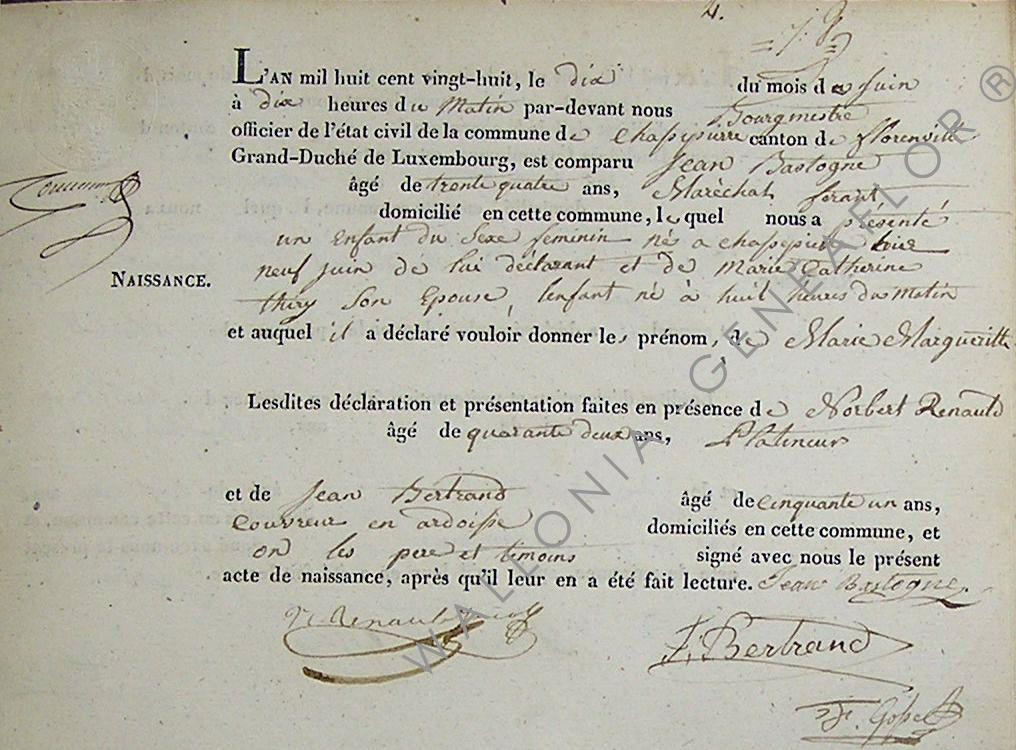 4.
L'AN mil huit cent vingt-huit, le dix du mois de juin
à dix heures du matin par-devant nous Bourgmestre
officier de l'état civil de la commune de chassepierre canton de florenville
Grand-Duché de Luxembourg, est comparu Jean Bastogne
âgé de trente quatre ans, Maréchal ferant,
domicilié en cette commune, le quel nous a présenté
un Enfant du Sexe feminin né a chassepierre hier
neuf juin de lui déclarant et de Marie Catherine
NAISSANCE.
thiry Son Epouse, lenfant né à huit heures du Matin
et auquel il a déclaré vouloir donner les prénom, de Marie Margueritte
Lesdites déclaration et présentation faites en présence de Norbert Renauld
âgé de quarante deux ans, Platineur
et de Jean Bertrand âgé de cinquante un ans,
couvreur en ardoisse domiciliés en cette commune, et
on les pere et temoins signé avec nous le présent
acte de naissance, après qu'il leur en a été fait lecture. Jean Bastogne
N Renauld
J. Bertrand
WALLONIA GENEAFLOR ®